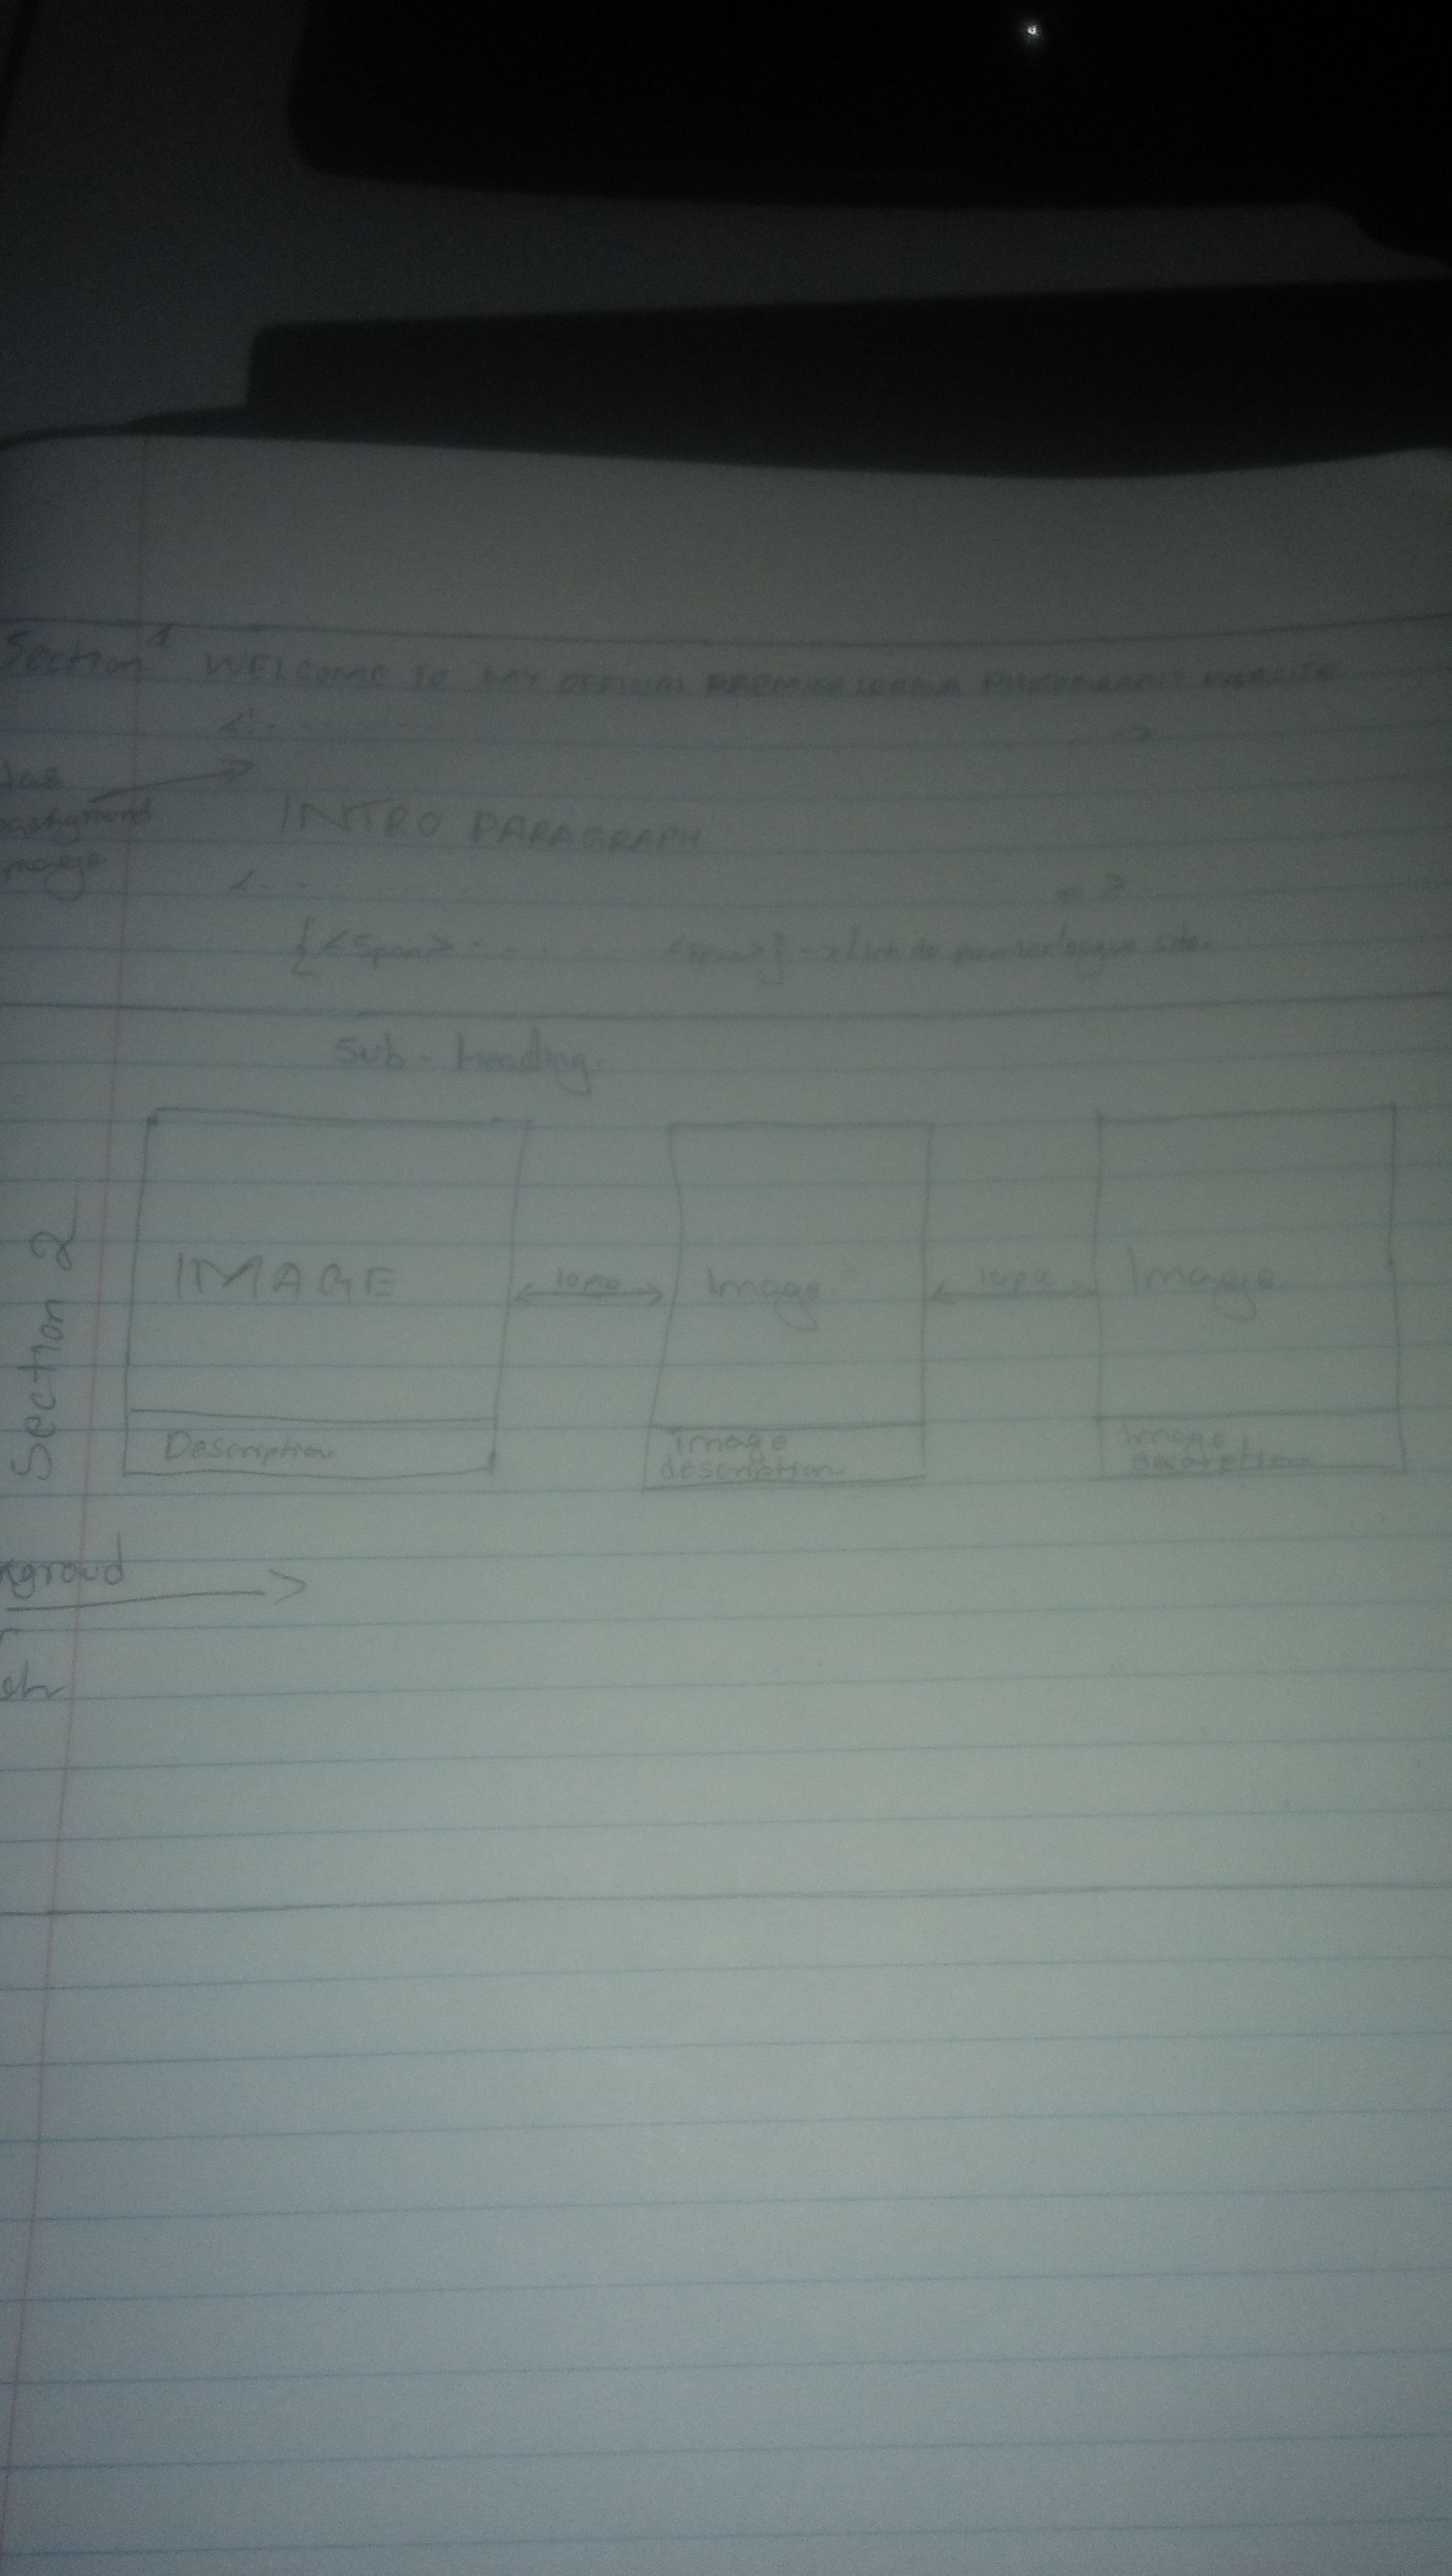 Section 1 WELCOME TO MY OFFICIAL PREMIER LEAGUE PHOTOGRAPHY WEBSITE
background
INTRO PARAGRAPH
{<span> <span>} -> Link to premierleague site.
Sub-heading.
Section 2
IMAGE 10px Image 10px Image
Description Image description Image description
kgroud